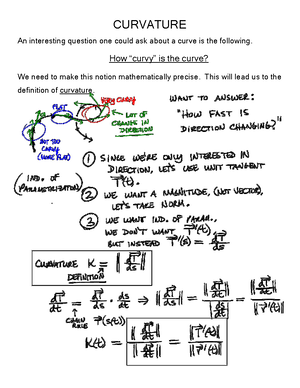 CURVATURE
An interesting question one could ask about a curve is the following.
How "curvy" is the curve?
We need to make this notion mathematically precise. This will lead us to the
definition of curvature.
FLAT
VERY CURVY
LOT OF
CHANGE IN
DIRECTION
NOT TOO
CURVY
(MORE FLAT)
WANT TO ANSWER:
"HOW FAST IS
DIRECTION CHANGING?"
① SINCE WE'RE ONLY INTERESTED IN
DIRECTION, LET'S USE UNIT TANGENT
T⃗(t).
② WE WANT A MAGNITUDE, (NOT VECTOR),
LET'S TAKE NORM.
(IND. OF
PARAMETRIZATION)
③ WE WANT IND. OF PARAM.,
WE DON'T WANT T⃗'(t)
BUT INSTEAD T⃗'(s) = dT⃗/ds
CURVATURE K = ||dT⃗/ds||
DEFINITION
dT⃗/dt = dT⃗/ds · ds/dt ⇒ ||dT⃗/ds|| = ||dT⃗/dt|| / |ds/dt| = ||dT⃗/dt|| / ||r⃗'(t)||
CHAIN
RULE
T⃗(s(t))
K(t) = ||dT⃗/dt|| / ||dr⃗/dt|| = ||T⃗'(t)|| / ||r⃗'(t)||